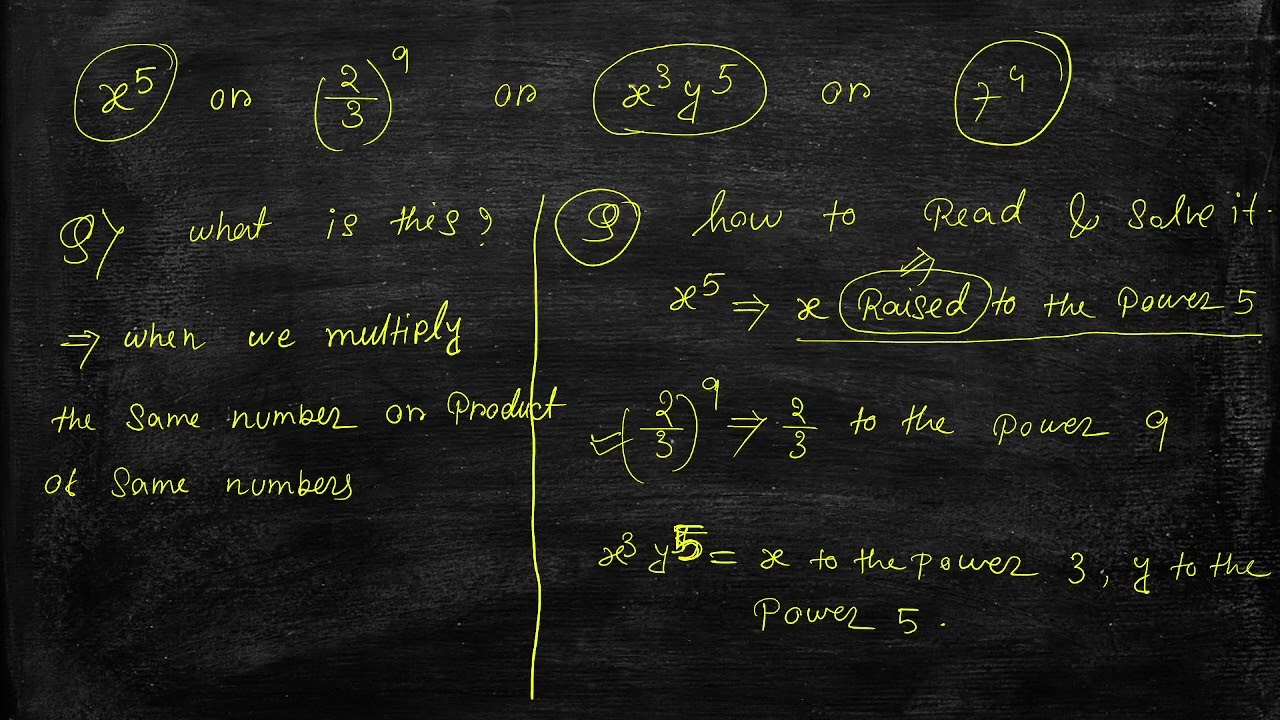 x⁵ or (2/3)⁹ or x³y⁵ or 7⁴
Q) what is this?
⇒ when we multiply
the same number or Product
of same numbers
Q how to Read & solve it.
x⁵ ⇒ x Raised to the Power 5
(2/3)⁹ ⇒ 2/3 to the power 9
x³ y⁵ = x to the power 3, y to the
Power 5.